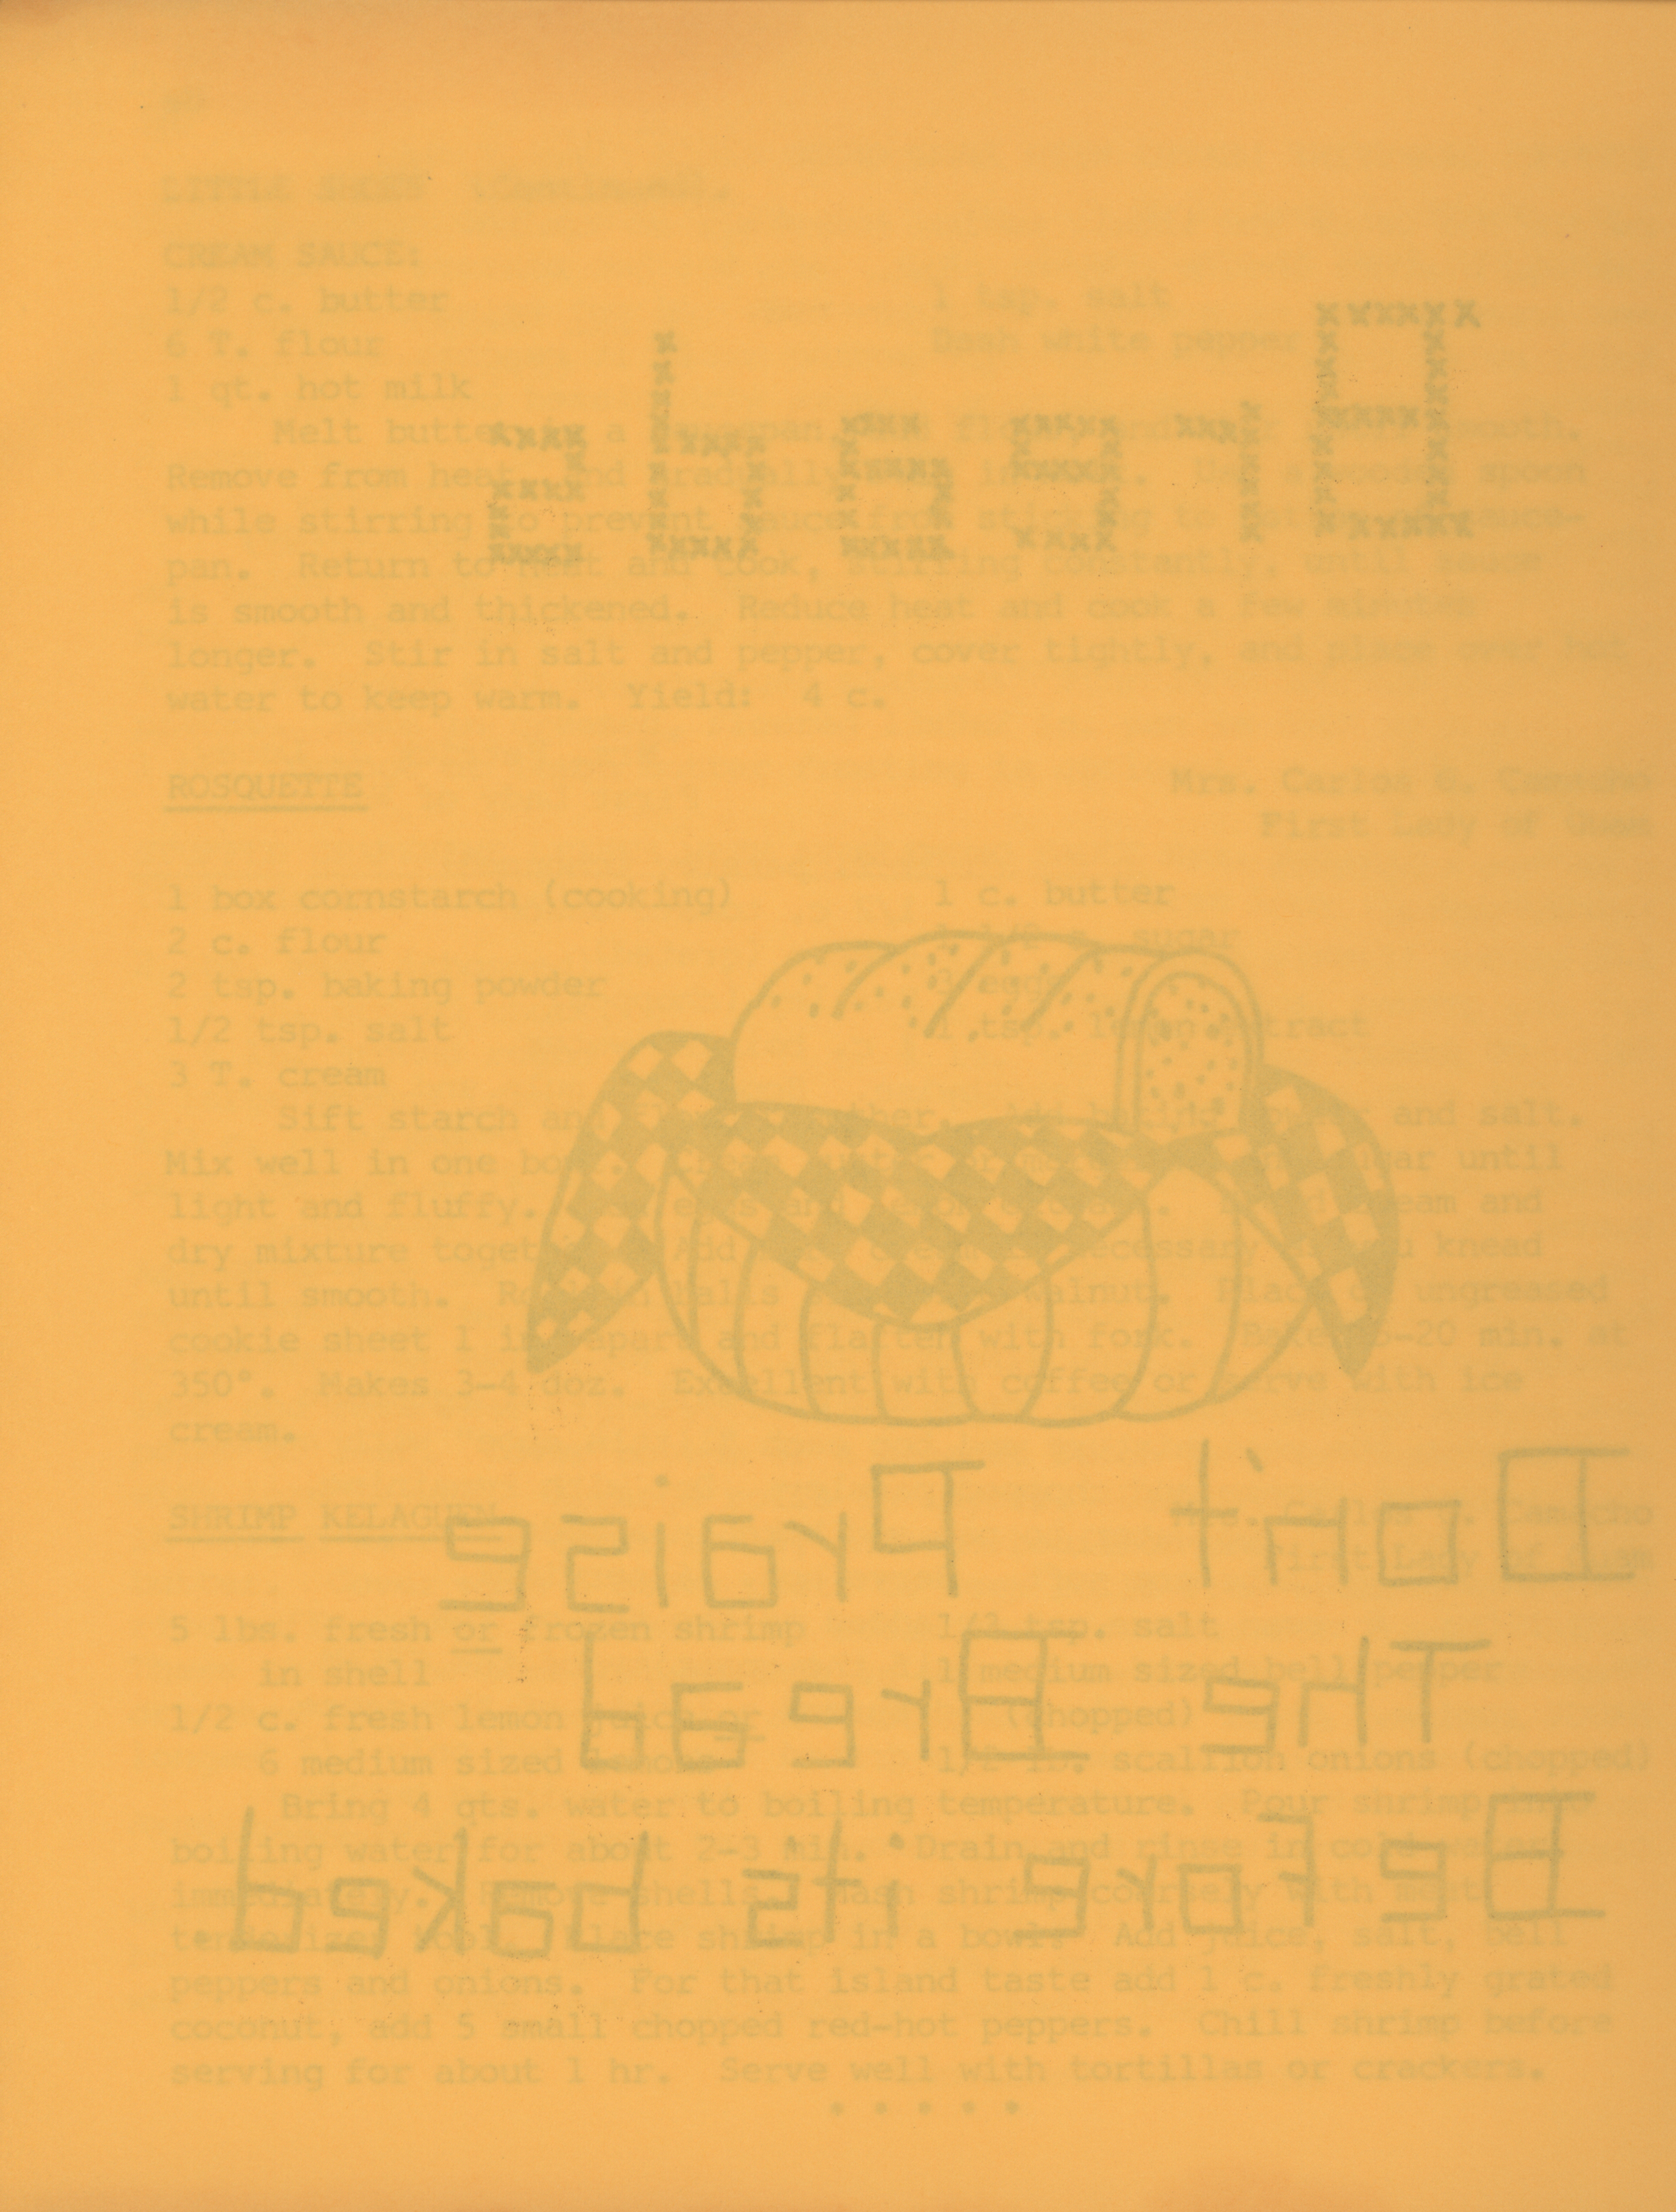 LITTLE SHOES (Continued).
CREAM SAUCE:
1/2 c. butter 1 tsp. salt
6 T. flour Dash white pepper
1 qt. hot milk
Melt butter in a saucepan, add flour, and stir until smooth.
Remove from heat and gradually stir in milk. Use a wooden spoon
while stirring to prevent sauce from sticking to bottom of sauce-
pan. Return to heat and cook, stirring constantly, until sauce
is smooth and thickened. Reduce heat and cook a few minutes
longer. Stir in salt and pepper, cover tightly, and place over hot
water to keep warm. Yield: 4 c.
ROSQUETTE Mrs. Carlos G. Camacho
First Lady of Guam
1 box cornstarch (cooking) 1 c. butter
2 c. flour 1 1/2 c. sugar
2 tsp. baking powder 3 eggs
1/2 tsp. salt 1 tsp. lemon extract
3 T. cream
Sift starch and flour together. Add baking powder and salt.
Mix well in one bowl. Cream butter or margarine and sugar until
light and fluffy. Add eggs and lemon extract. Blend cream and
dry mixture together. Add more cream if necessary as you knead
until smooth. Roll in balls size of a walnut. Place on ungreased
cookie sheet 1 in. apart and flatten with fork. Bake 15-20 min. at
350°. Makes 3-4 doz. Excellent with coffee or serve with ice
cream.
SHRIMP KELAGUEN Mrs. Carlos G. Camacho
First Lady of Guam
5 lbs. fresh or frozen shrimp 1/3 tsp. salt
in shell 1 medium sized bell pepper
1/2 c. fresh lemon juice or (chopped)
6 medium sized lemons 1/2 lb. scallion onions (chopped)
Bring 4 qts. water to boiling temperature. Pour shrimp into
boiling water for about 2-3 min. Drain and rinse in cold water
immediately. Remove shells. Mash shrimp coarsely with meat
tenderizer tool. Place shrimp in a bowl. Add juice, salt, bell
peppers and onions. For that island taste add 1 c. freshly grated
coconut, add 5 small chopped red-hot peppers. Chill shrimp before
serving for about 1 hr. Serve well with tortillas or crackers.
Breads
Don't Praise
The Bread
Before its baked